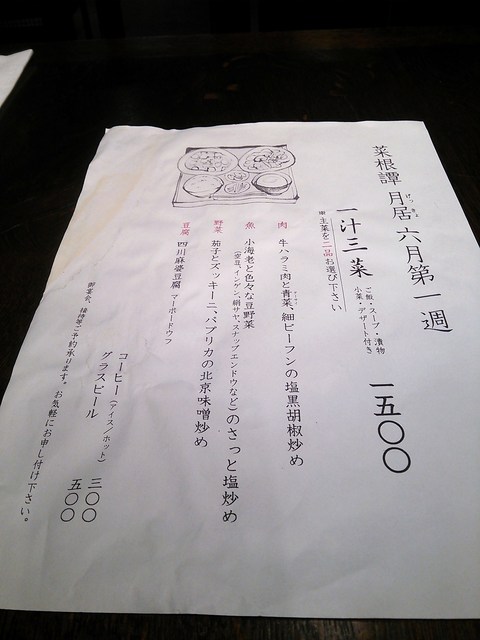 菜根譚 月居 六月第一週
げっきょ
一汁三菜 ご飯・スープ・漬物 一五〇〇
小菜・デザート付き
※主菜を二品お選び下さい
肉 牛ハラミ肉と青菜、細ビーフンの塩黒胡椒炒め
魚 小海老と色々な豆野菜
(空豆、インゲン、絹サヤ、スナップエンドウなど)のさっと塩炒め
野菜 茄子とズッキーニ、パプリカの北京味噌炒め
豆腐 四川麻婆豆腐 マーボードウフ
コーヒー(アイス/ホット) 三〇〇
グラスビール 五〇〇
御宴会、接待等ご予約承ります。お気軽にお申し付け下さい。